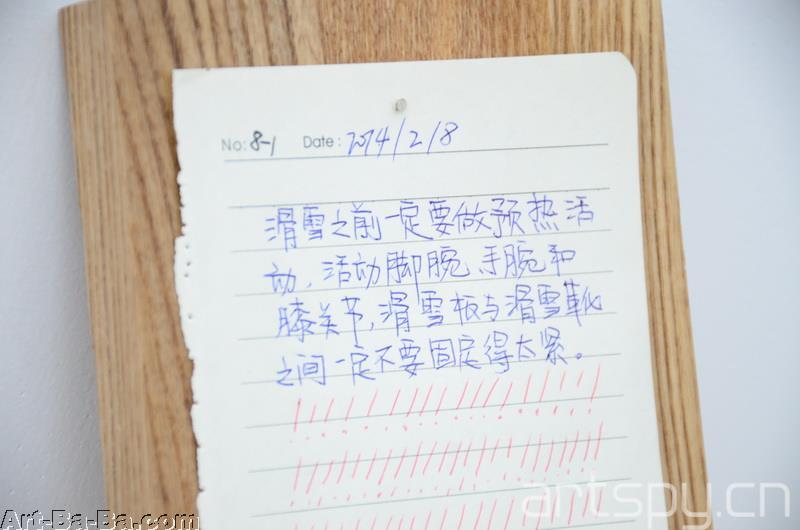 No: 8-1 Date: 2014/2/8
滑雪之前一定要做预热活
动，活动脚腕、手腕和
膝关节，滑雪板与滑雪靴
之间一定不要固定得太紧。
!!!!!!!!!!!!!!!!!!
!!!!!!!!!!!!!!!!!!
artspy.cn
Art-Ba-Ba.com